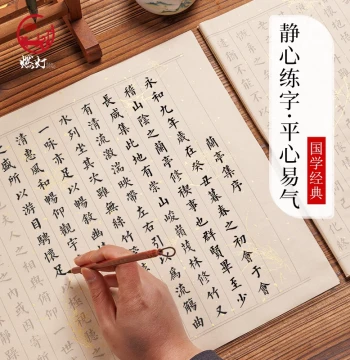 燃灯
静心练字·平心易气
国学经典
蘭亭集序
永和九年歲在癸丑暮春之初會于會
稽山陰之蘭亭修禊事也群賢畢至少
長咸集此地有崇山峻嶺茂林修竹又
有清流激湍映帶左右引以為流觴曲
水列坐其次雖無絲竹
一詠亦足以暢敘幽
清惠風和暢仰觀宇
之盛所以游目騁懷足